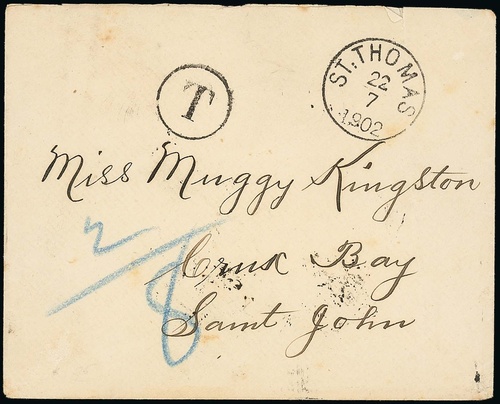 T
ST. THOMAS
22
7
1902
Miss Muggy Kingston
Crux Bay
Saint John
2/8